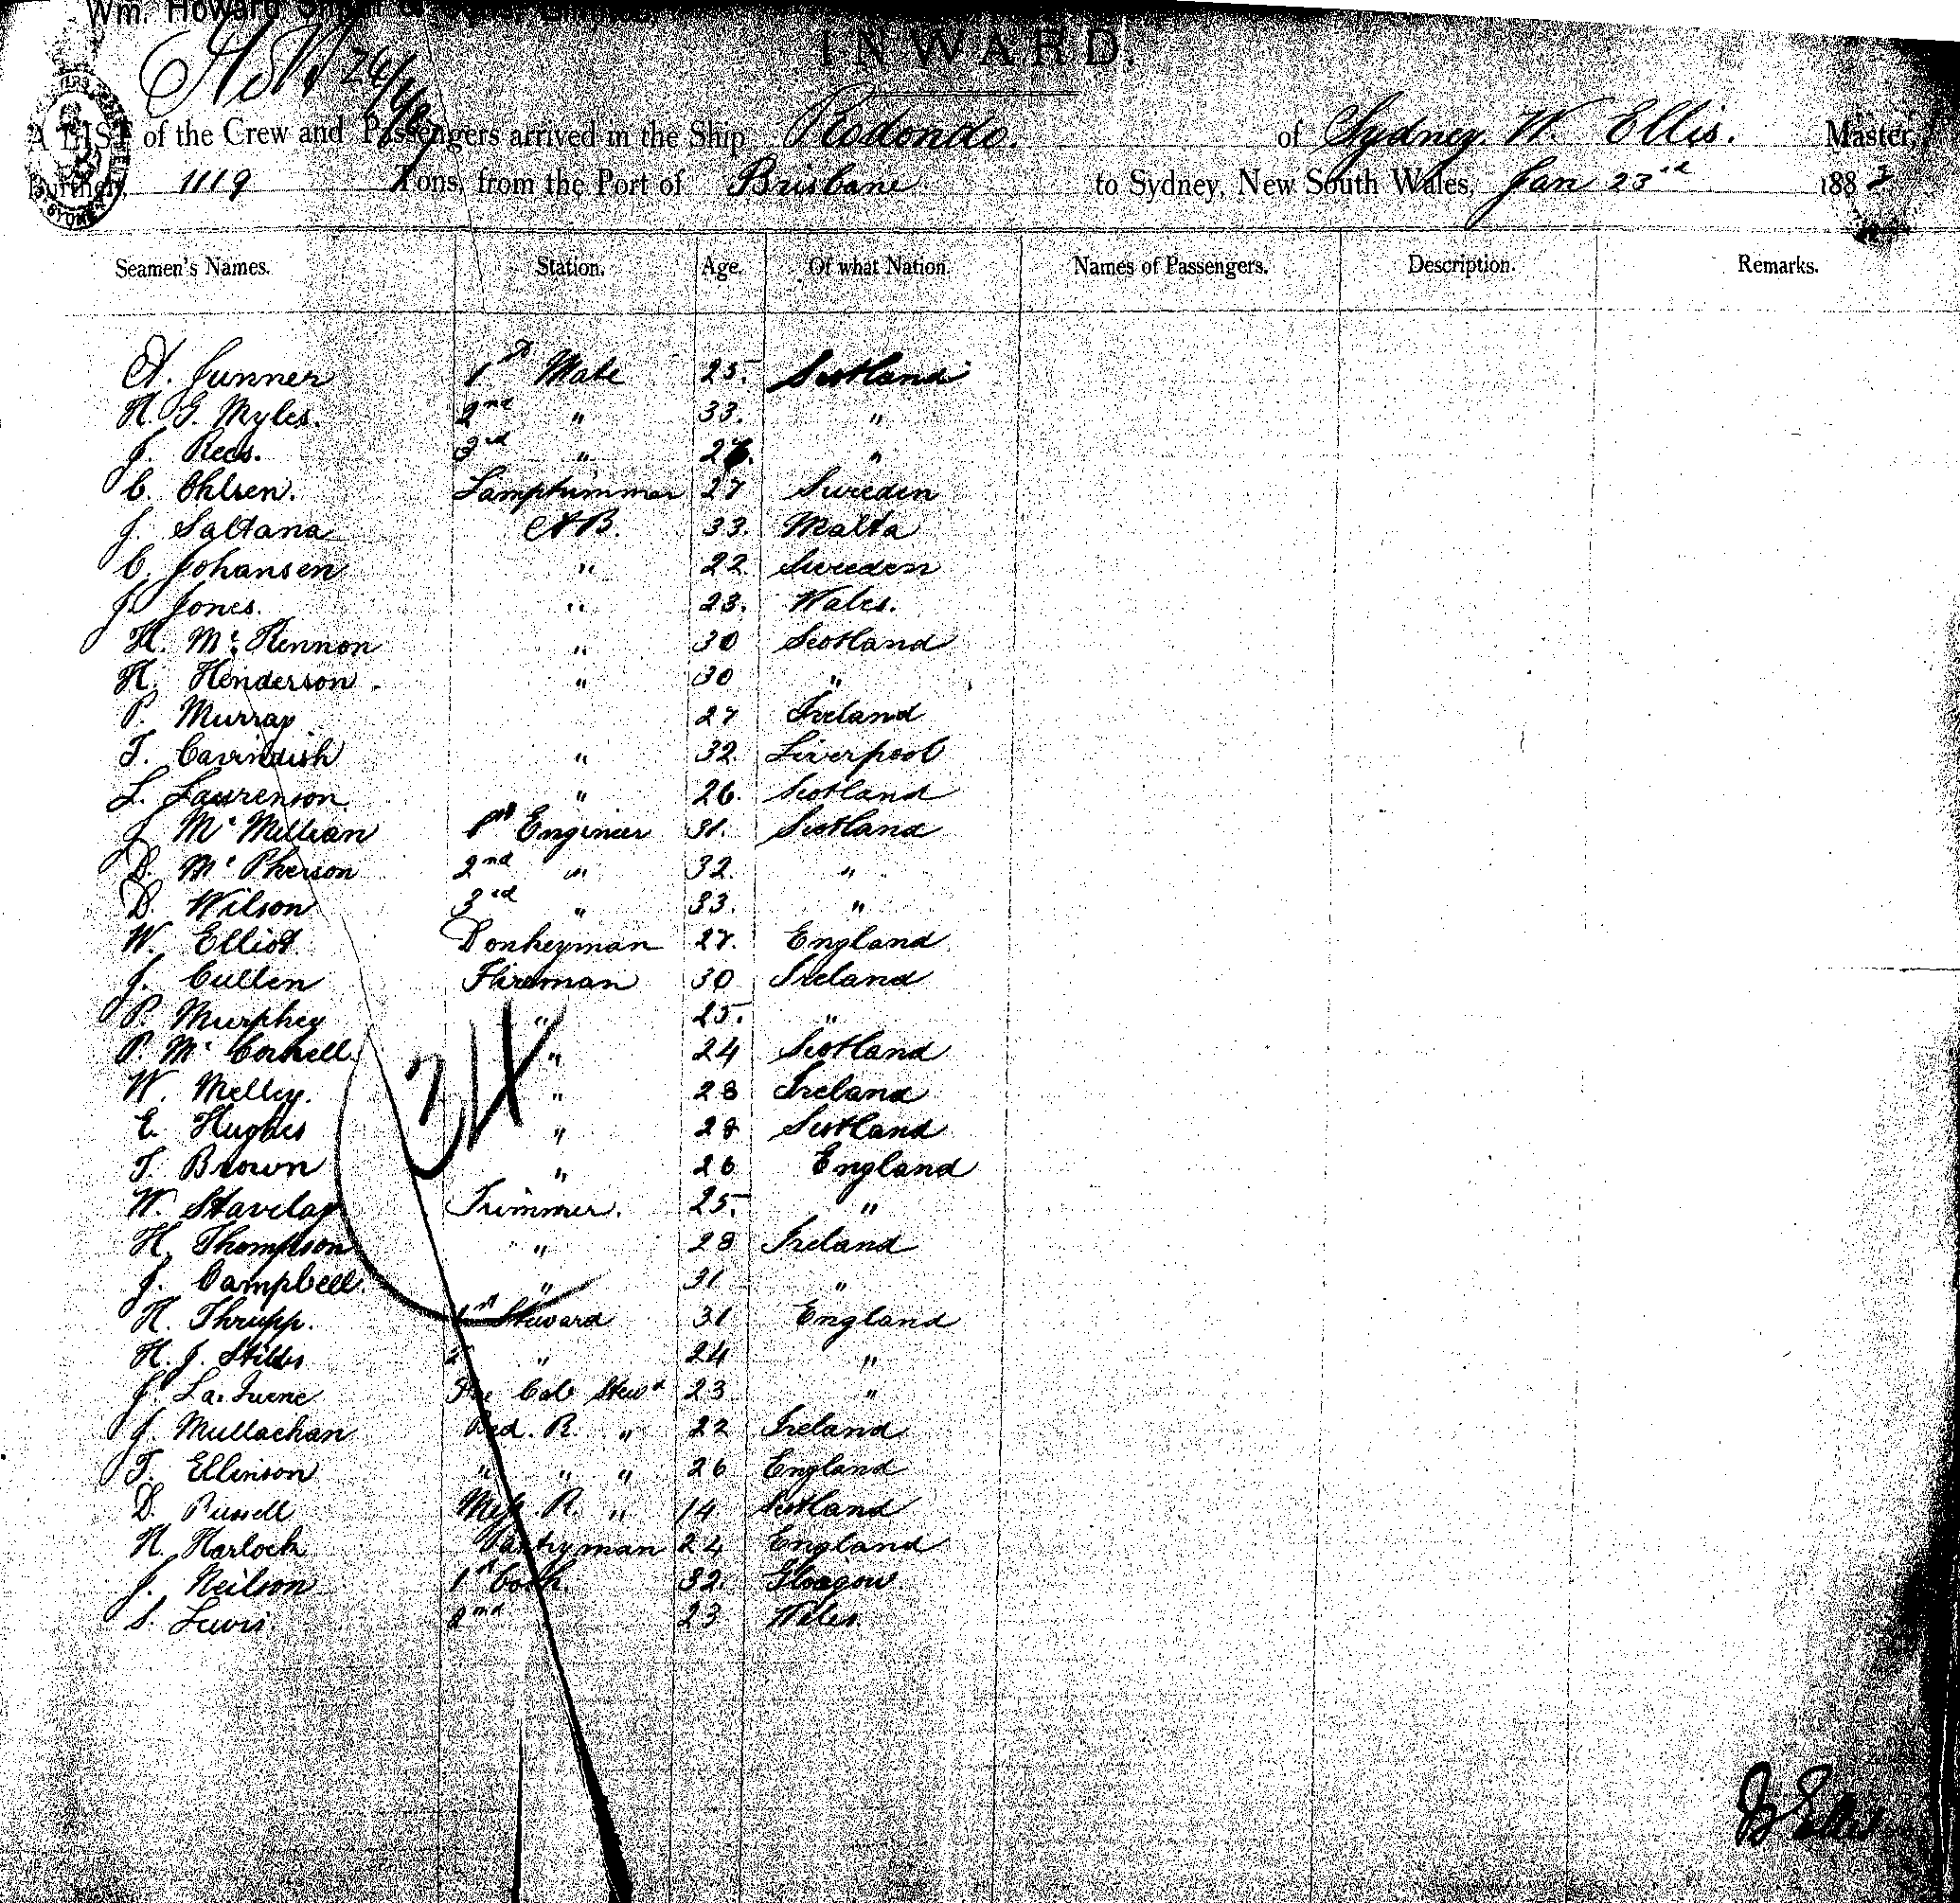 Wm. Howard Smith
INWARD.
A LIST of the Crew and Passengers arrived in the Ship Rodondo. of Sydney. W. Ellis. Master,
Burthen, 1119 Tons, from the Port of Brisbane to Sydney, New South Wales, Jan 23rd 1883
Seamen's Names. Station. Age. Of what Nation. Names of Passengers. Description. Remarks.
A. Junner 1st Mate 25. Scotland
H. G. Myles. 2nd " 33. "
J. Rees. 3rd " "
C. Ohlsen. Lamptrimmer 27 Sweden
J. Saltana AB. 33. Malta
C. Johansen " 22 Sweden
J. Jones. " 23. Wales.
H. Mc Kennon " 30 Scotland
H. Henderson. " 30 "
P. Murray 27 Ireland
T. Cavindish " 32. Liverpool
L. Laurenson. " 26. Scotland
J McMillian 1st Engineer 31. Scotland
D. McPherson 2nd " 32. "
D. Wilson 3rd " 33. "
W. Elliot Donkeyman 27. England
J. Cullen Fireman 30 Ireland
P. Murphey " 25. "
P. Mc Connell. " 24 Scotland
W. Melley. " 28 Ireland
E. Hughes " 28 Scotland
T. Brown " 26 England
W. Stavelay Trimmer. 25. "
H. Thompson " 28 Ireland
J. Campbell. " 31 "
H. Thrupp. 1st Steward 31 England
H. J. Stibbs 2nd " 24 "
J. La. Fore Cab Stewd 23 "
J. Mullachan Bed. R. " 22 Ireland
T. Ellinson " " " 26 England
D. Russell Mess R. " 14 Scotland
H. Harlock Pantryman 24 England
J. Neilson 1st Cook. 32. Glasgow
S. Lewis. 2nd 23 Wales.
W Ellis